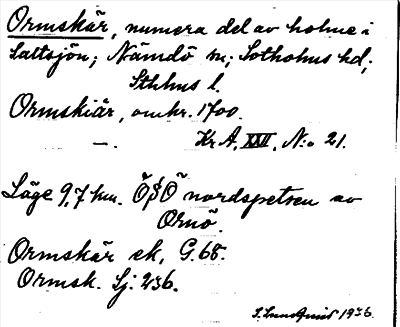 Ormskär, numera del av holme i
Saltsjön; Nämdö sn; Sotholms hd;
Sthlms l.
Ormskiär, omkr. 1700.
—. Kr A, XXII, N:o 21.
Läge 9,7 km. Ö§Ö nordspetsen av
Ornö.
Ormskär ek, G. 68.
Ormsk. Sj. 236.
S. Lundquist 1936.